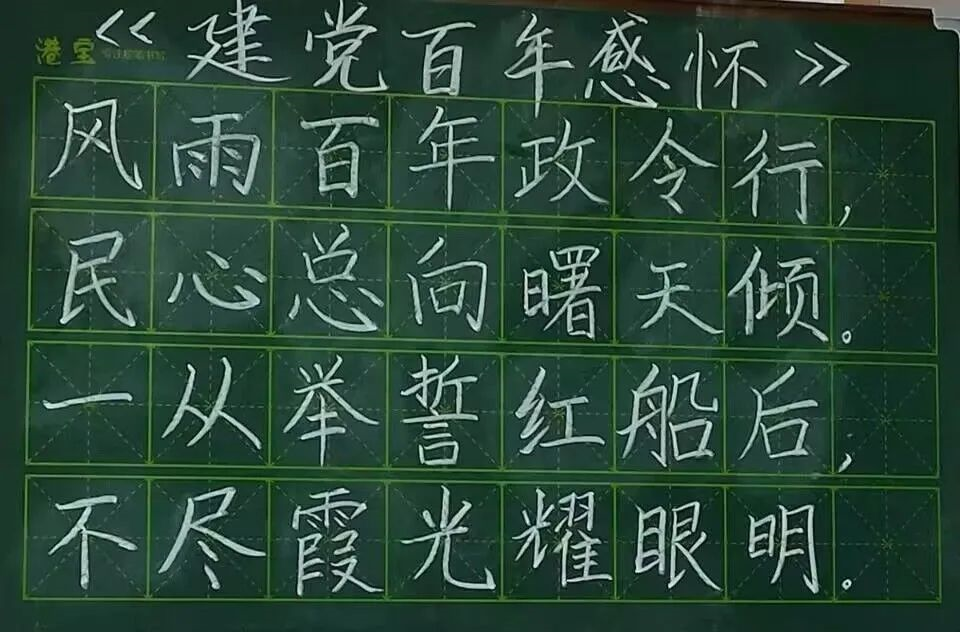 港宝
《建党百年感怀》
风雨百年政令行，
民心总向曙天倾。
一从举誓红船后，
不尽霞光耀眼明。